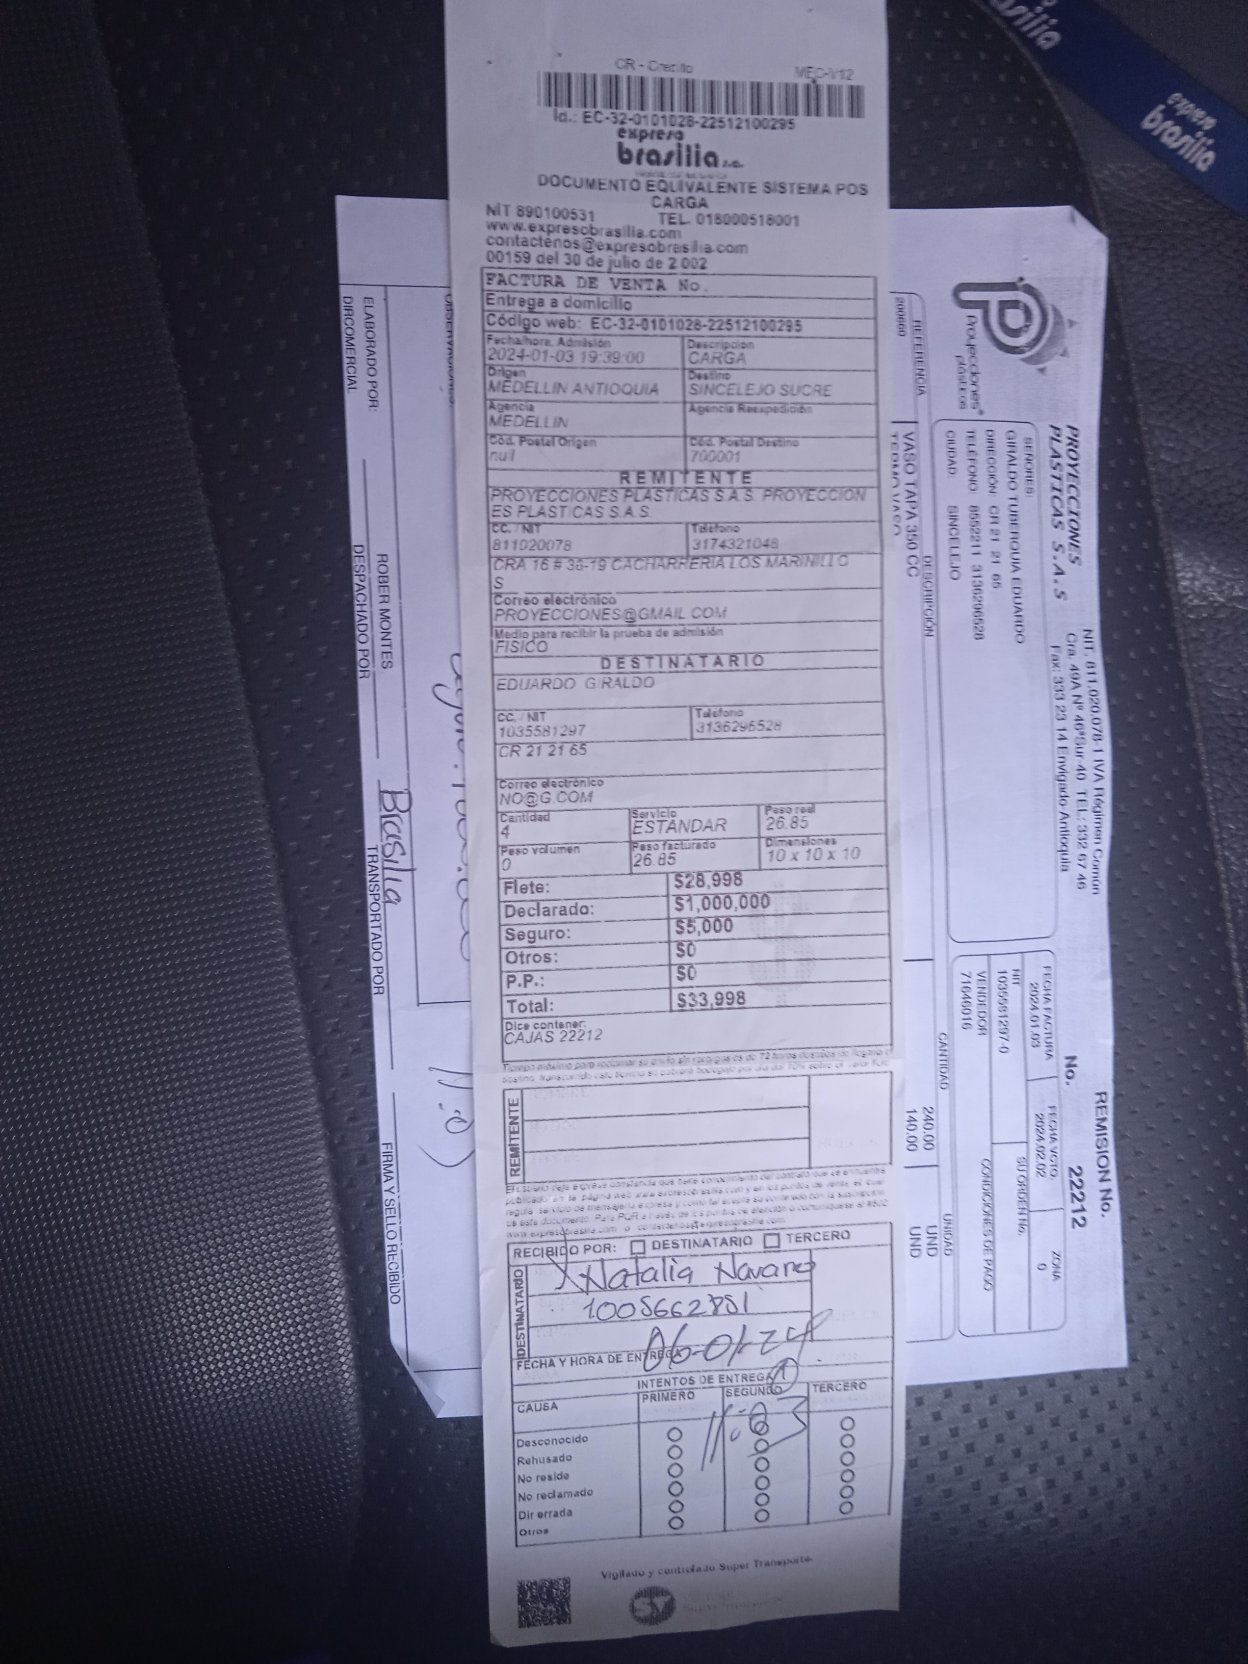 CR - Credito MEC-V12
Id.: EC-32-0101028-22512100295
expreso
brasilia s.a.
DOCUMENTO EQUIVALENTE SISTEMA POS
CARGA
NIT 890100531 TEL. 018000518001
www.expresobrasilia.com
contactenos@expresobrasilia.com
00159 del 30 de julio de 2002
FACTURA DE VENTA No.
Entrega a domicilio
Código web: EC-32-0101028-22512100295
Fecha/hora. Admisión Descripción
2024-01-03 19:39:00 CARGA
Origen Destino
MEDELLIN ANTIOQUIA SINCELEJO SUCRE
Agencia Agencia Reexpedición
MEDELLIN
Cód. Postal Origen Cód. Postal Destino
null 700001
REMITENTE
PROYECCIONES PLASTICAS S.A.S. PROYECCION
ES PLASTICAS S.A.S.
CC. / NIT Teléfono
811020078 3174321048
CRA 16 # 36-19 CACHARRERIA LOS MARINILLO
S
Correo electrónico
PROYECCIONES@GMAIL.COM
Medio para recibir la prueba de admisión
FISICO
DESTINATARIO
EDUARDO GIRALDO
CC. / NIT Teléfono
1035581297 3136296528
CR 21 21 65
Correo electrónico
NO@G.COM
Cantidad Servicio Peso real
4 ESTANDAR 26.85
Peso volumen Peso facturado Dimensiones
0 26.85 10 x 10 x 10
Flete: $28,998
Declarado: $1,000,000
Seguro: $5,000
Otros: $0
P.P.: $0
Total: $33,998
Dice contener:
CAJAS 22212
REMITENTE
RECIBIDO POR: DESTINATARIO TERCERO
DESTINATARIO
Natalia Navarro
1005662851
FECHA Y HORA DE ENTREGA
06-01-24
INTENTOS DE ENTREGA
CAUSA PRIMERO SEGUNDO TERCERO
11:03
Desconocido
Rehusado
No reside
No reclamado
Dir errada
Otros
Vigilado y controlado Super Transporte.
Proyecciones
plásticas
PROYECCIONES
PLASTICAS S.A.S
NIT. 811.020.078-1 IVA Régimen Común
Cra. 49A Nº 46ªSur-40 TEL.: 332 67 46
Fax: 333 23 14 Envigado Antioquia
REMISION No.
No. 22212
SEÑORES:
GIRALDO TUBERQUIA EDUARDO
DIRECCIÓN: CR 21 21 65
TELÉFONO 8552211 3136296528
CIUDAD: SINCELEJO
FECHA FACTURA FECHA VCTO. ZONA
2024.01.03 2024.02.02 0
NIT SU ORDEN No.
1035581297-0
VENDEDOR CONDICIONES DE PAGO
71646016
REFERENCIA DESCRIPCIÓN CANTIDAD UNIDAD
200660 VASO TAPA 350 CC 240.00 UND
140.00 UND
ELABORADO POR: ROBER MONTES
DIRCOMERCIAL
DESPACHADO POR
Brasilia
TRANSPORTADO POR
FIRMA Y SELLO RECIBIDO
expreso
brasilia